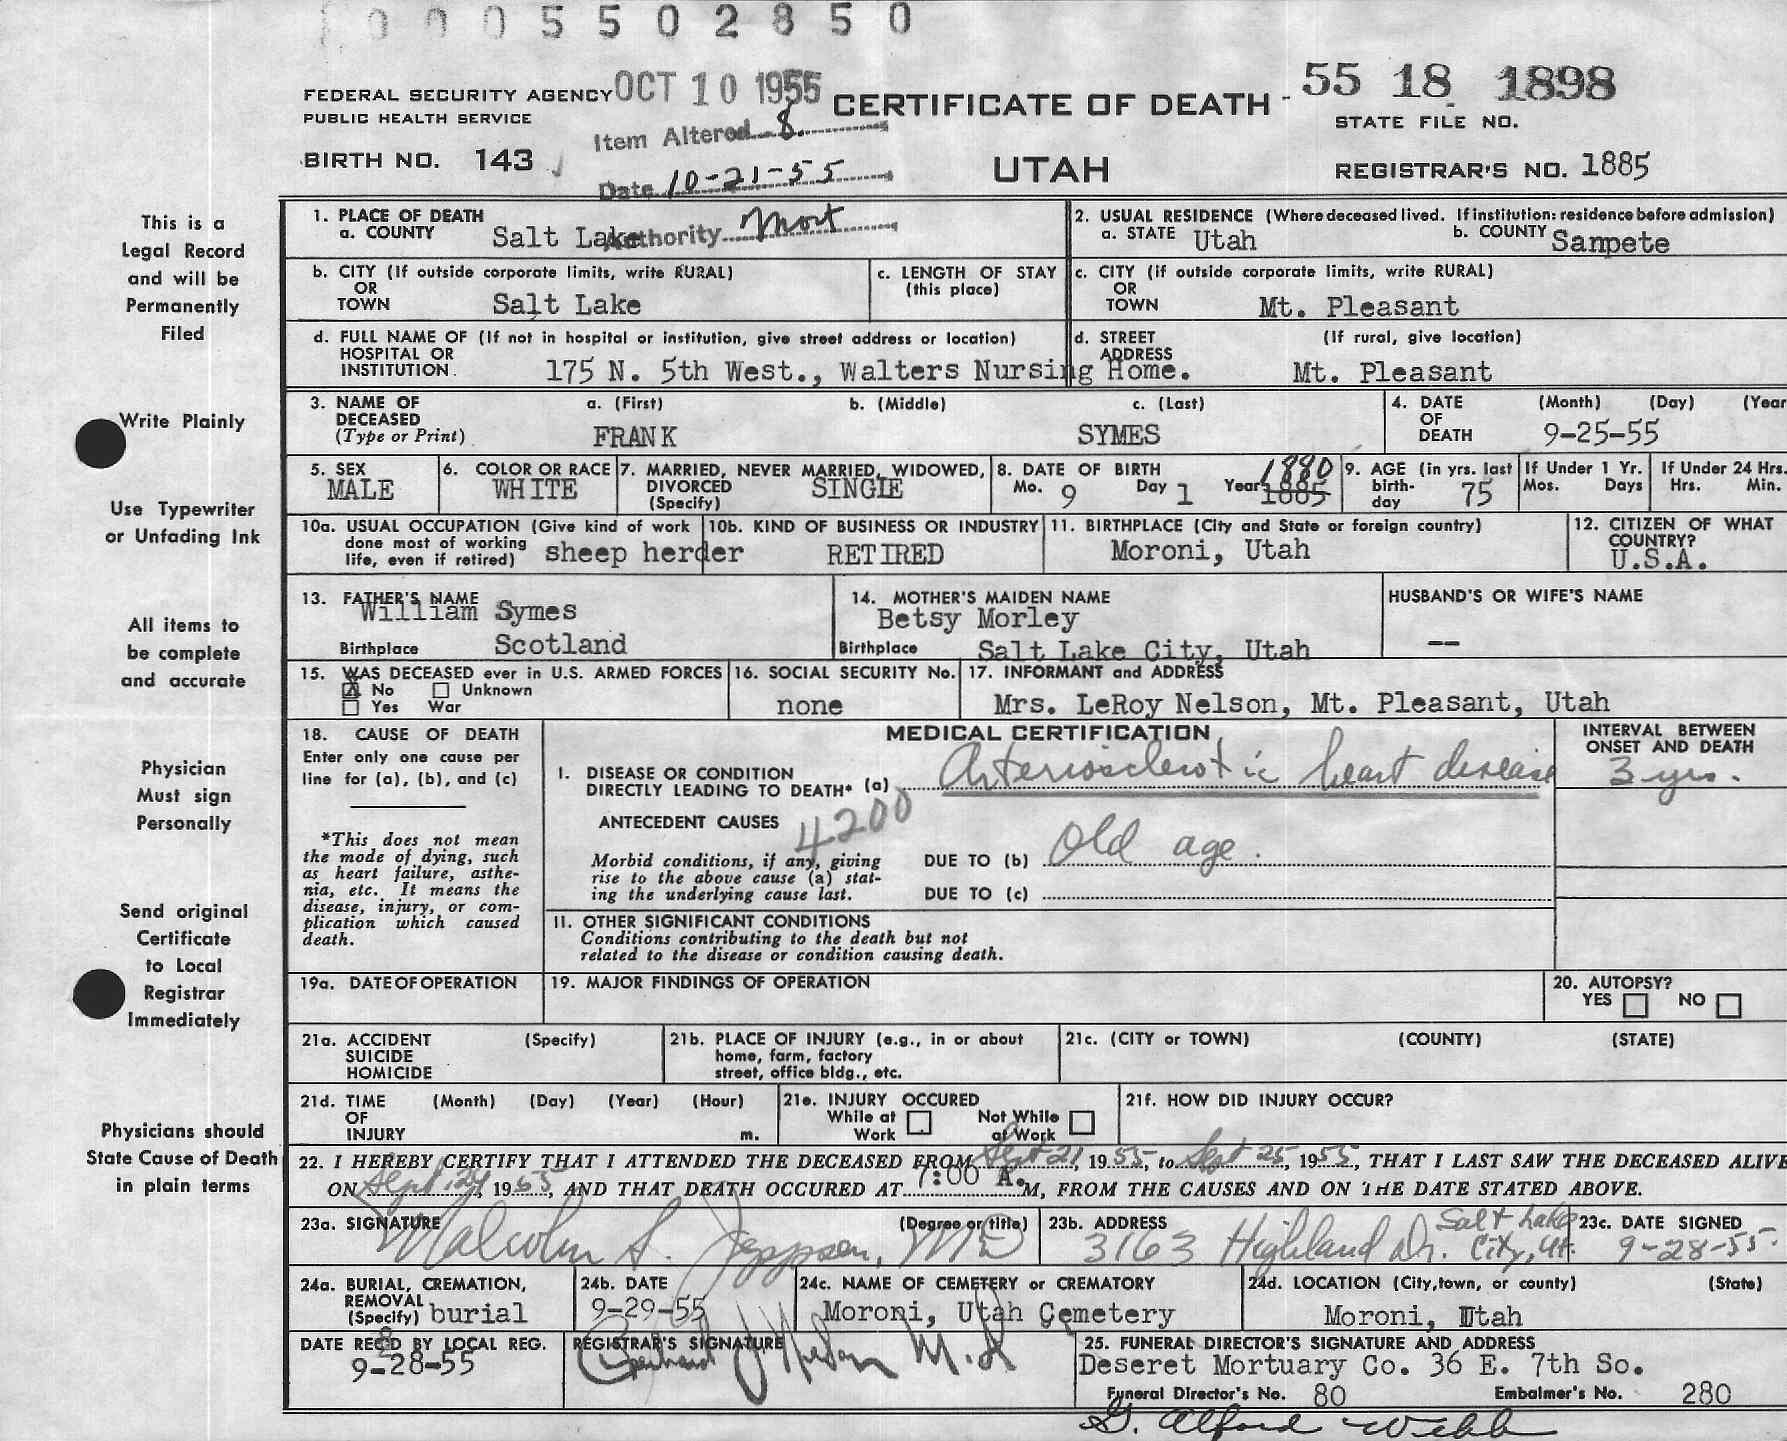 0005502850
FEDERAL SECURITY AGENCY OCT 10 1955 CERTIFICATE OF DEATH - 55 18 1898
PUBLIC HEALTH SERVICE Item Altered 8 STATE FILE NO.
BIRTH NO. 143 Date 10-21-55 UTAH REGISTRAR'S NO. 1885
Authority Mort
This is a
Legal Record
and will be
Permanently
Filed
Write Plainly
Use Typewriter
or Unfading Ink
All items to
be complete
and accurate
Physician
Must sign
Personally
Send original
Certificate
to Local
Registrar
Immediately
Physicians should
State Cause of Death
in plain terms
1. PLACE OF DEATH
a. COUNTY Salt Lake
2. USUAL RESIDENCE (Where deceased lived. If institution: residence before admission)
a. STATE Utah b. COUNTY Sanpete
b. CITY (If outside corporate limits, write RURAL)
OR
TOWN Salt Lake
c. LENGTH OF STAY
(this place)
c. CITY (If outside corporate limits, write RURAL)
OR
TOWN Mt. Pleasant
d. FULL NAME OF (If not in hospital or institution, give street address or location)
HOSPITAL OR
INSTITUTION. 175 N. 5th West., Walters Nursing Home.
d. STREET (If rural, give location)
ADDRESS
Mt. Pleasant
3. NAME OF a. (First) b. (Middle) c. (Last)
DECEASED
(Type or Print) FRANK SYMES
4. DATE (Month) (Day) (Year
OF
DEATH 9-25-55
5. SEX
MALE
6. COLOR OR RACE
WHITE
7. MARRIED, NEVER MARRIED, WIDOWED,
DIVORCED SINGlE
(Specify)
8. DATE OF BIRTH 1880
Mo. 9 Day 1 Year 1885
9. AGE (in yrs. last
birth-
day 75
If Under 1 Yr.
Mos. Days
If Under 24 Hrs.
Hrs. Min.
10a. USUAL OCCUPATION (Give kind of work
done most of working
life, even if retired) sheep herder
10b. KIND OF BUSINESS OR INDUSTRY
RETIRED
11. BIRTHPLACE (City and State or foreign country)
Moroni, Utah
12. CITIZEN OF WHAT
COUNTRY?
U.S.A.
13. FATHER'S NAME
William Symes
Birthplace Scotland
14. MOTHER'S MAIDEN NAME
Betsy Morley
Birthplace Salt Lake City, Utah
HUSBAND'S OR WIFE'S NAME
--
15. WAS DECEASED ever in U.S. ARMED FORCES
X No Unknown
Yes War
16. SOCIAL SECURITY No.
none
17. INFORMANT and ADDRESS
Mrs. LeRoy Nelson, Mt. Pleasant, Utah
18. CAUSE OF DEATH
Enter only one cause per
line for (a), (b), and (c)
*This does not mean
the mode of dying, such
as heart failure, asthe-
nia, etc. It means the
disease, injury, or com-
plication which caused
death.
MEDICAL CERTIFICATION
I. DISEASE OR CONDITION
DIRECTLY LEADING TO DEATH* (a) Arteriosclerotic heart disease
ANTECEDENT CAUSES 4200
Morbid conditions, if any, giving
rise to the above cause (a) stat-
ing the underlying cause last.
DUE TO (b) Old age.
DUE TO (c)
INTERVAL BETWEEN
ONSET AND DEATH
3 yrs.
II. OTHER SIGNIFICANT CONDITIONS
Conditions contributing to the death but not
related to the disease or condition causing death.
19a. DATE OF OPERATION
19. MAJOR FINDINGS OF OPERATION
20. AUTOPSY?
YES NO
21a. ACCIDENT (Specify)
SUICIDE
HOMICIDE
21b. PLACE OF INJURY (e.g., in or about
home, farm, factory
street, office bldg., etc.
21c. (CITY or TOWN) (COUNTY) (STATE)
21d. TIME (Month) (Day) (Year) (Hour)
OF
INJURY m.
21e. INJURY OCCURED
While at Not While
Work at Work
21f. HOW DID INJURY OCCUR?
22. I HEREBY CERTIFY THAT I ATTENDED THE DECEASED FROM Sept 21, 1955, to Sept 25, 1955, THAT I LAST SAW THE DECEASED ALIVE
ON Sept 24, 1955, AND THAT DEATH OCCURED AT 7:00 A.M, FROM THE CAUSES AND ON THE DATE STATED ABOVE.
23a. SIGNATURE (Degree or title)
Malcolm S. Jeppsen, MD
23b. ADDRESS
3163 Highland Dr. Salt Lake City, Ut.
23c. DATE SIGNED
9-28-55.
24a. BURIAL, CREMATION,
REMOVAL
(Specify) burial
24b. DATE
9-29-55
24c. NAME OF CEMETERY or CREMATORY
Moroni, Utah Cemetery
24d. LOCATION (City, town, or county) (State)
Moroni, Utah
DATE REC'D BY LOCAL REG.
9-28-55
REGISTRAR'S SIGNATURE
M.D
25. FUNERAL DIRECTOR'S SIGNATURE AND ADDRESS
Deseret Mortuary Co. 36 E. 7th So.
Funeral Director's No. 80 Embalmer's No. 280
G. Alford Webb